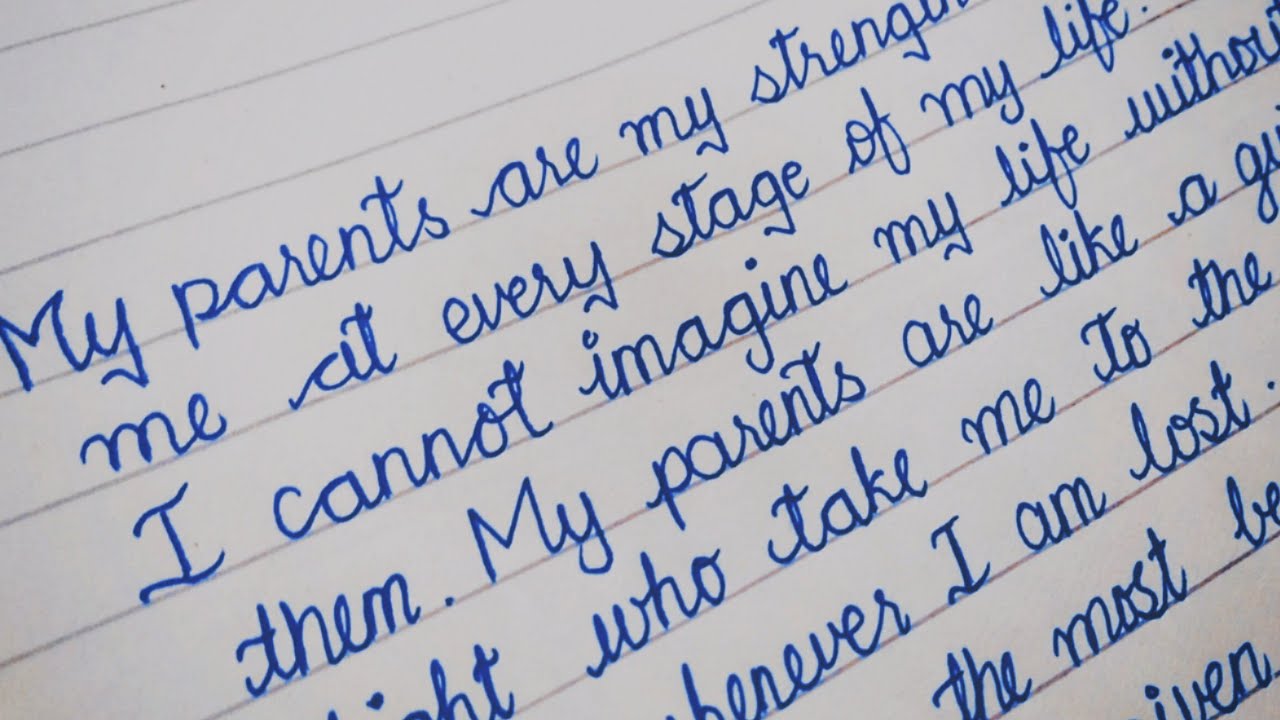 My parents are my
me at every stage of my life.
I cannot imagine my life without
them. My parents are like a
who take me to the
I am lost.
the most